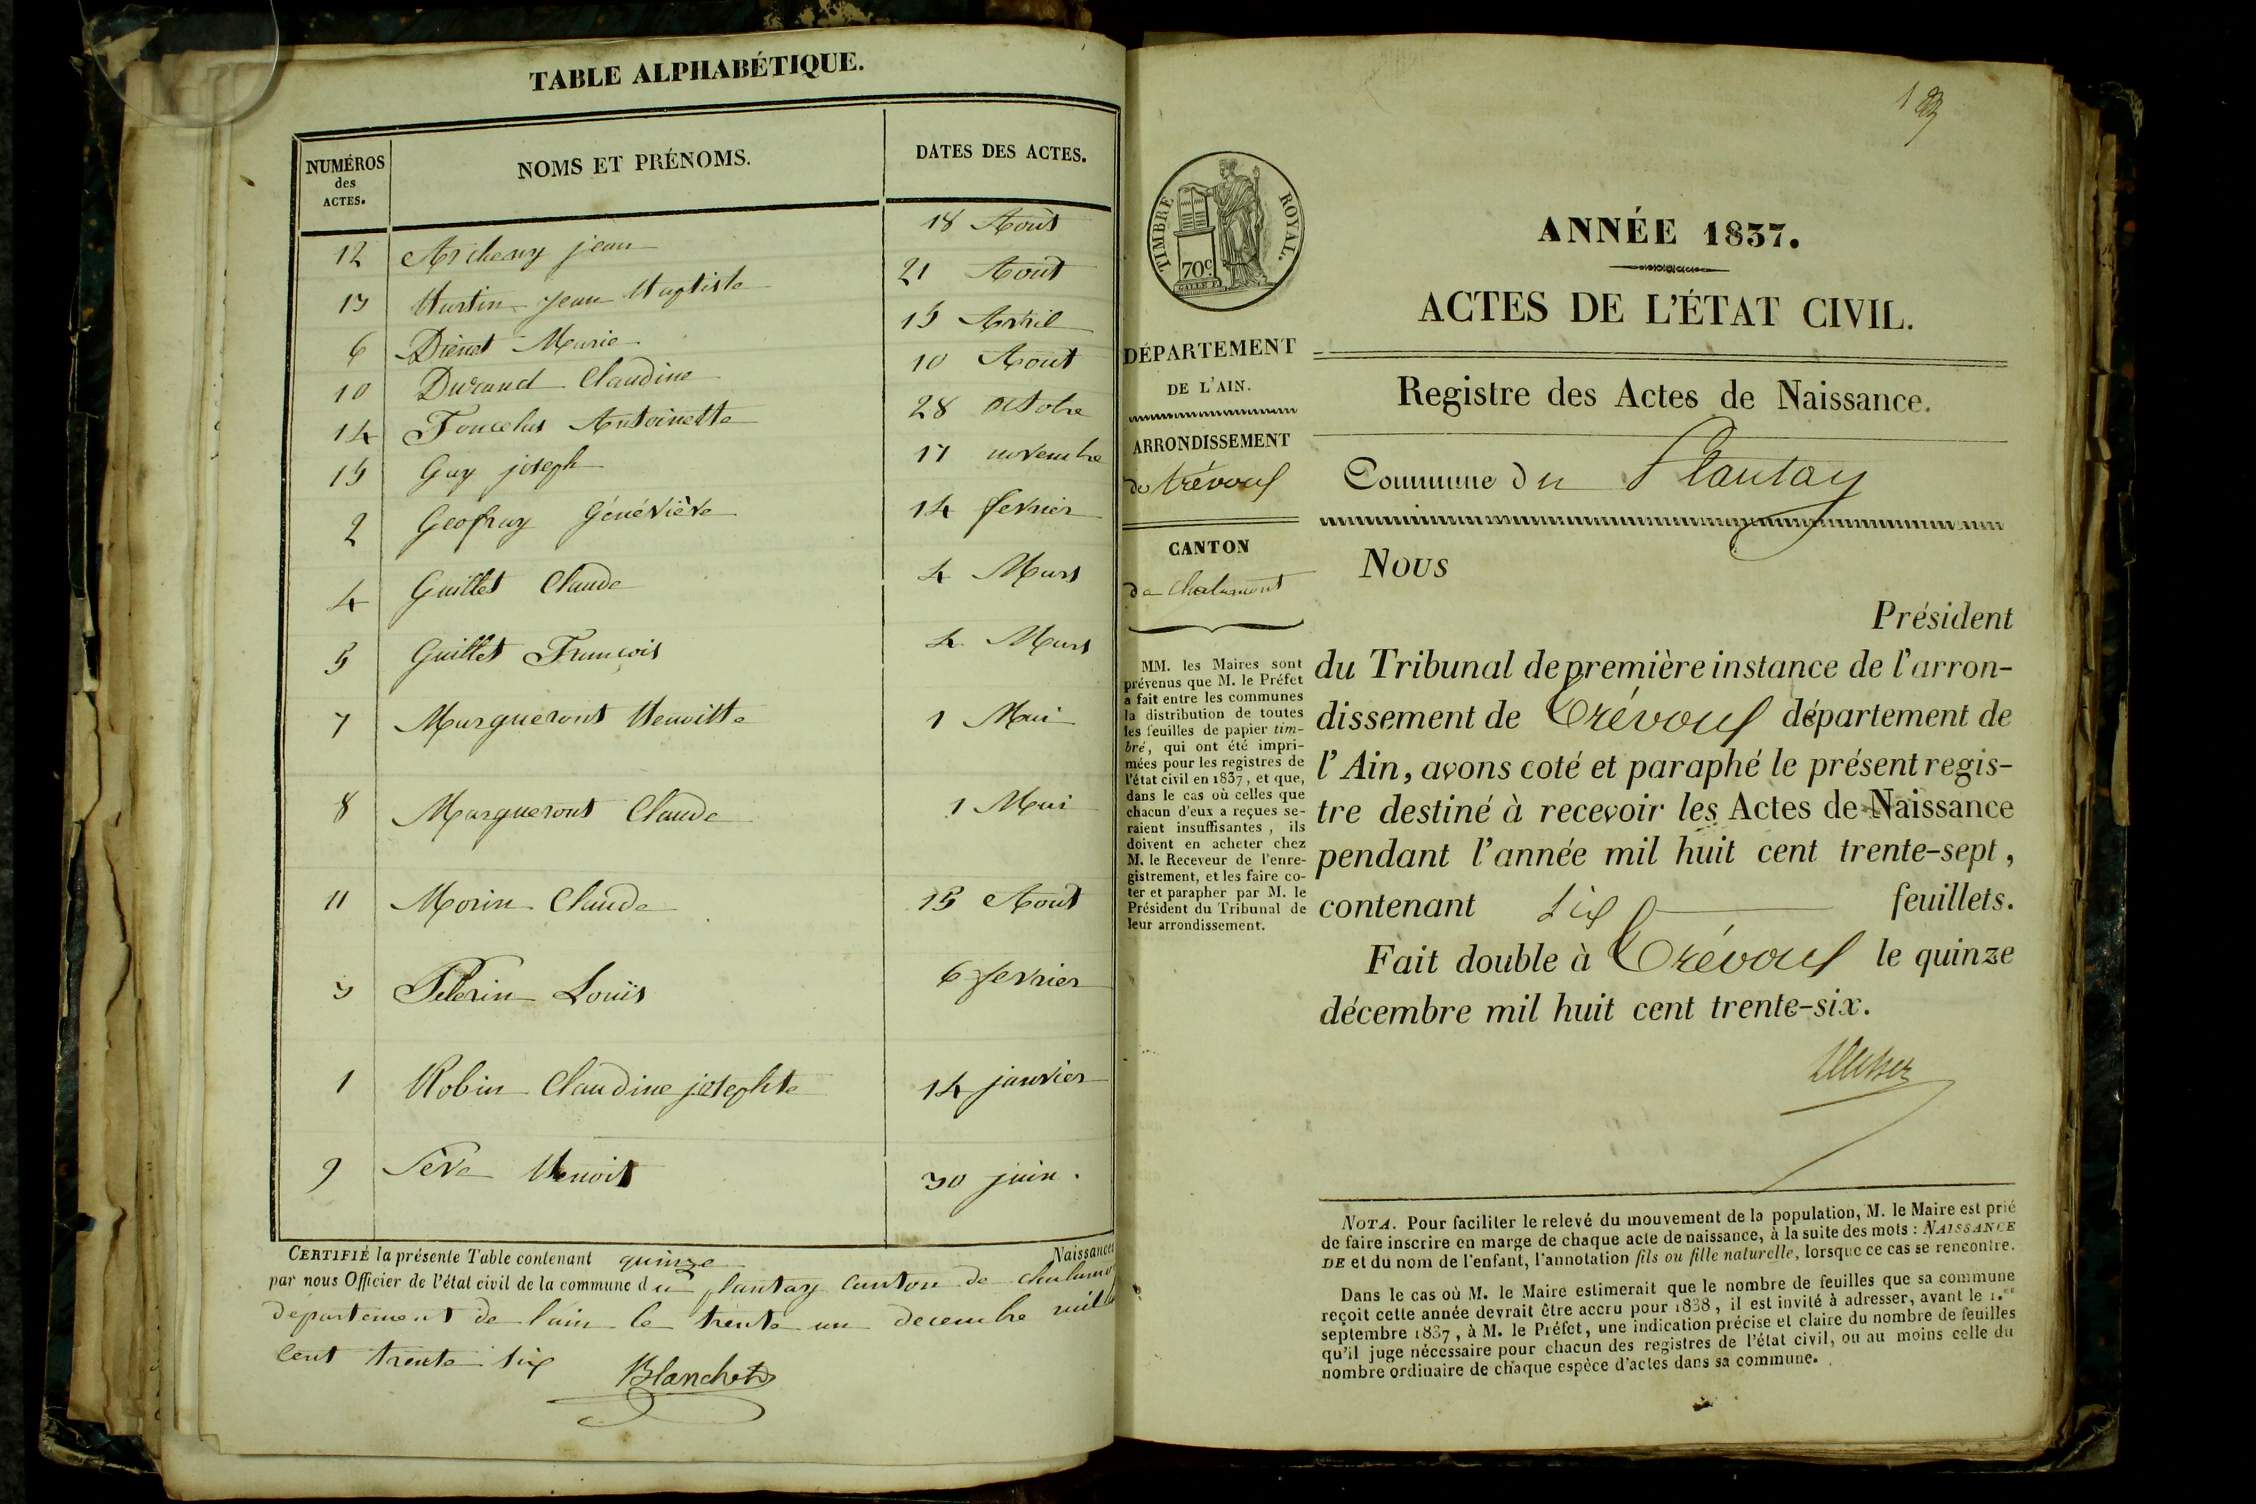 TABLE ALPHABÉTIQUE.
NUMÉROS
des
ACTES.
NOMS ET PRÉNOMS.
DATES DES ACTES.
12 jean 18 Aout
13 Martin jean Baptiste 21 Aout
6 Marie 15 Avril
10 Durand Claudine 10 Aout
14 Antoinette 28 octobre
15 Guy joseph 17 novembre
2 Geofray Généviève 14 fevrier
4 Guillet Claude 4 Mars
5 Guillet François 4 Mars
7 Marguerout Benoitte 1 Mai
8 Marguerout Claude 1 Mai
11 Morin Claude 15 Aout
3 Pelerin Louis 6 fevrier
1 Robin Claudine josephte 14 janvier
9 Sève Benoit 30 juin.
CERTIFIÉ la présente Table contenant quinze Naissances
par nous Officier de l'état civil de la commune du plantay canton de
département de l'ain le trente un decembre
cent trente six
Blanchet
ANNÉE 1837.
ACTES DE L'ÉTAT CIVIL.
Registre des Actes de Naissance.
Commune du Plantay
Nous
Président
du Tribunal de première instance de l'arron-
dissement de Trévoux département de
l'Ain, avons coté et paraphé le présent regis-
tre destiné à recevoir les Actes de Naissance
pendant l'année mil huit cent trente-sept,
contenant six feuillets.
Fait double à Trévoux le quinze
décembre mil huit cent trente-six.
NOTA. Pour faciliter le relevé du mouvement de la population, M. le Maire est prié
de faire inscrire en marge de chaque acte de naissance, à la suite des mots : NAISSANCE
DE et du nom de l'enfant, l'annotation fils ou fille naturelle, lorsque ce cas se rencontre.
Dans le cas où M. le Maire estimerait que le nombre de feuilles que sa commune
reçoit cette année devrait être accru pour 1838, il est invité à adresser, avant le 1.er
septembre 1837, à M. le Préfet, une indication précise et claire du nombre de feuilles
qu'il juge nécessaire pour chacun des registres de l'état civil, ou au moins celle du
nombre ordinaire de chaque espèce d'actes dans sa commune.
TIMBRE ROYAL.
70c
DÉPARTEMENT
DE L'AIN.
ARRONDISSEMENT
de trévoux
CANTON
de Chalamont
MM. les Maires sont
prévenus que M. le Préfet
a fait entre les communes
la distribution de toutes
les feuilles de papier tim-
bré, qui ont été impri-
mées pour les registres de
l'état civil en 1837, et que,
dans le cas où celles que
chacun d'eux a reçues se-
raient insuffisantes, ils
doivent en acheter chez
M. le Receveur de l'enre-
gistrement, et les faire co-
ter et parapher par M. le
Président du Tribunal de
leur arrondissement.